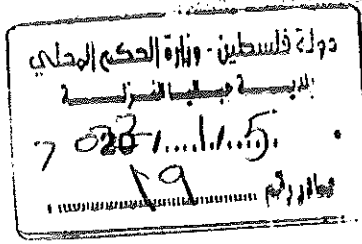 دولة فلسطين - وزارة الحكم المحلي
بلدية جباليا النزلة
20 / 1 / 5
صادر رقم ٢٩